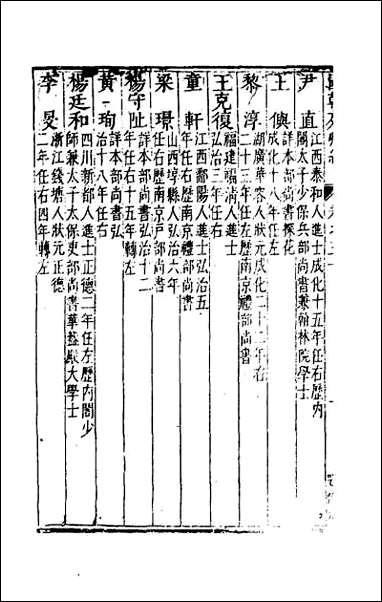 尹直
江西泰和人進士成化十五年任右歷內
閣太子少保兵部尚書兼翰林院學士
王㒜
詳本部尚書探花
成化十八年任左
黎淳
湖廣華容人狀元成化二十二年右
二十三年任左歷南京禮部尚書
王克復
福建福清人進士
弘治三年任右
童軒
江西鄱陽人進士弘治五
年任右歷南京禮部尚書
梁璟
山西崞縣人弘治六年
任右歷南京戶部尚書
楊守阯
詳本部尚書弘治十二
年任右十五年轉左
黃珣
詳本部尚書弘
治十八年任右
楊廷和
四川新都人進士正德二年任左歷內閣少
師兼太子太保吏部尚書華蓋殿大學士
李旻
浙江錢塘人狀元正德
二年任右四年轉左